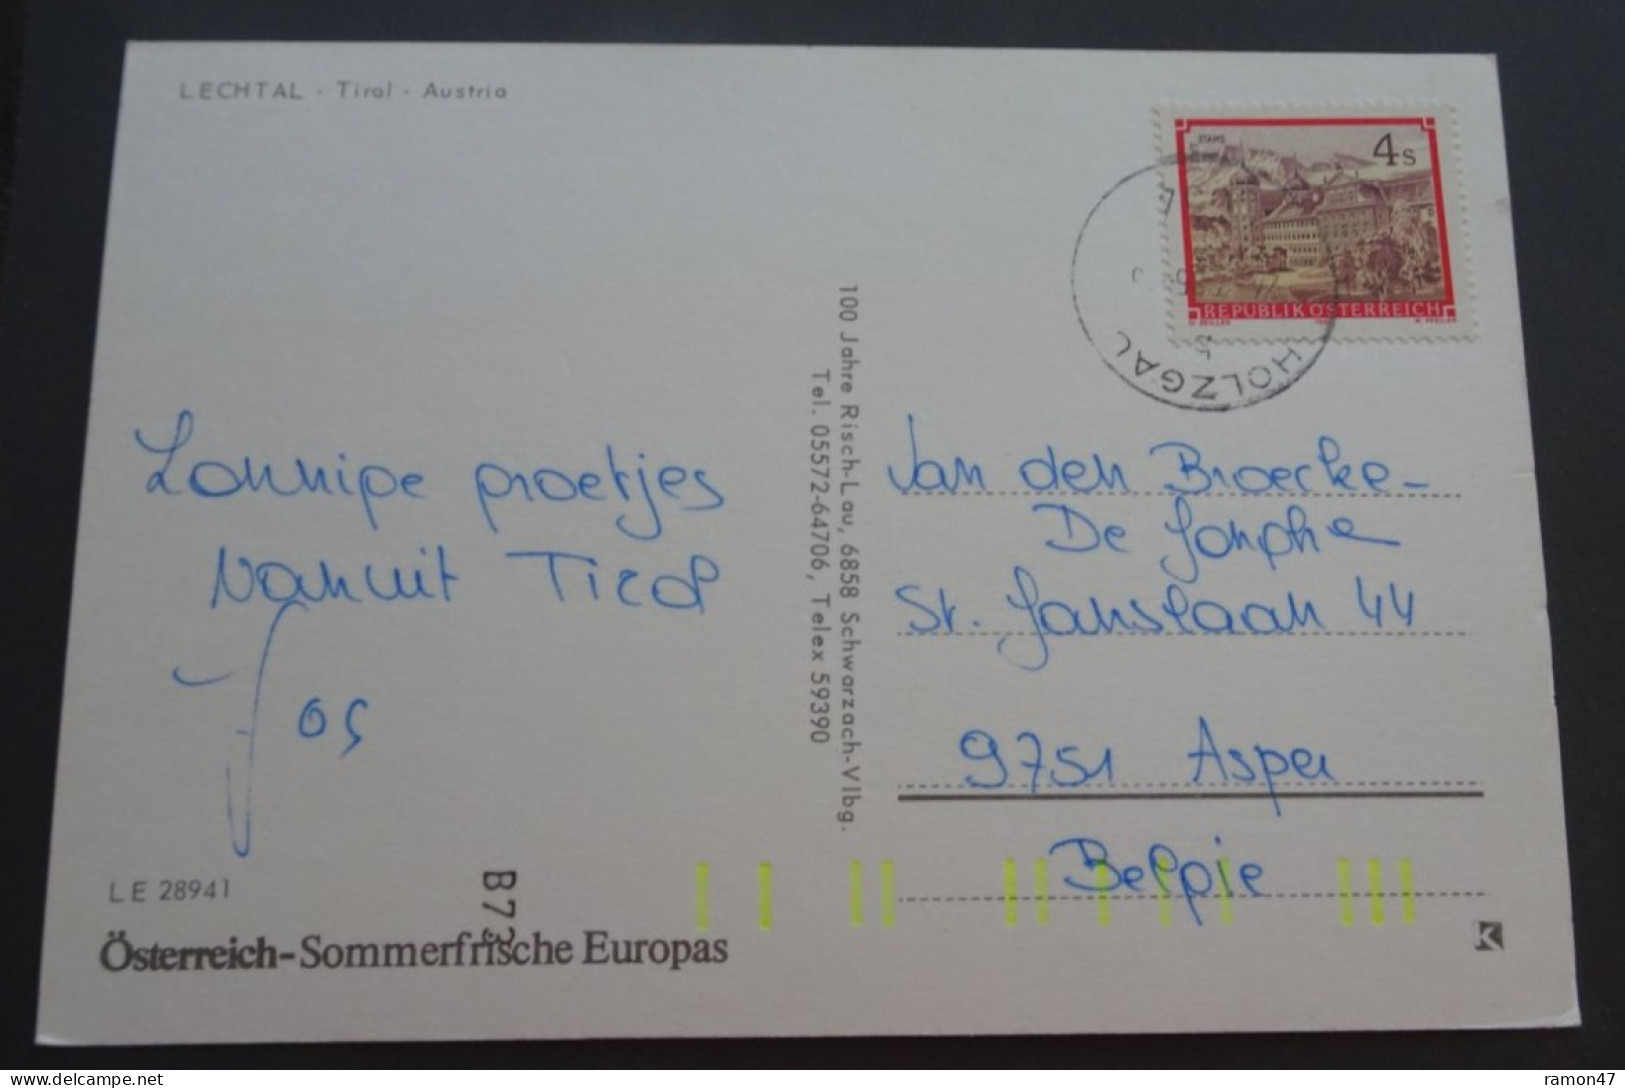 LECHTAL - Tirol - Austria
STAMS
4s
REPUBLIK ÖSTERREICH
HOLZGAU
100 Jahre Risch-Lau, 6858 Schwarzach-Vlbg.
Tel. 05572-64706, Telex 59390
Zonnige groetjes
vanuit Tirol
Jos
Van den Broecke-
De Jonghe
St. Janslaan 44
9751 Asper
Belgie
LE 28941
B73
Österreich-Sommerfrische Europas
K
delcampe.net
ramon47